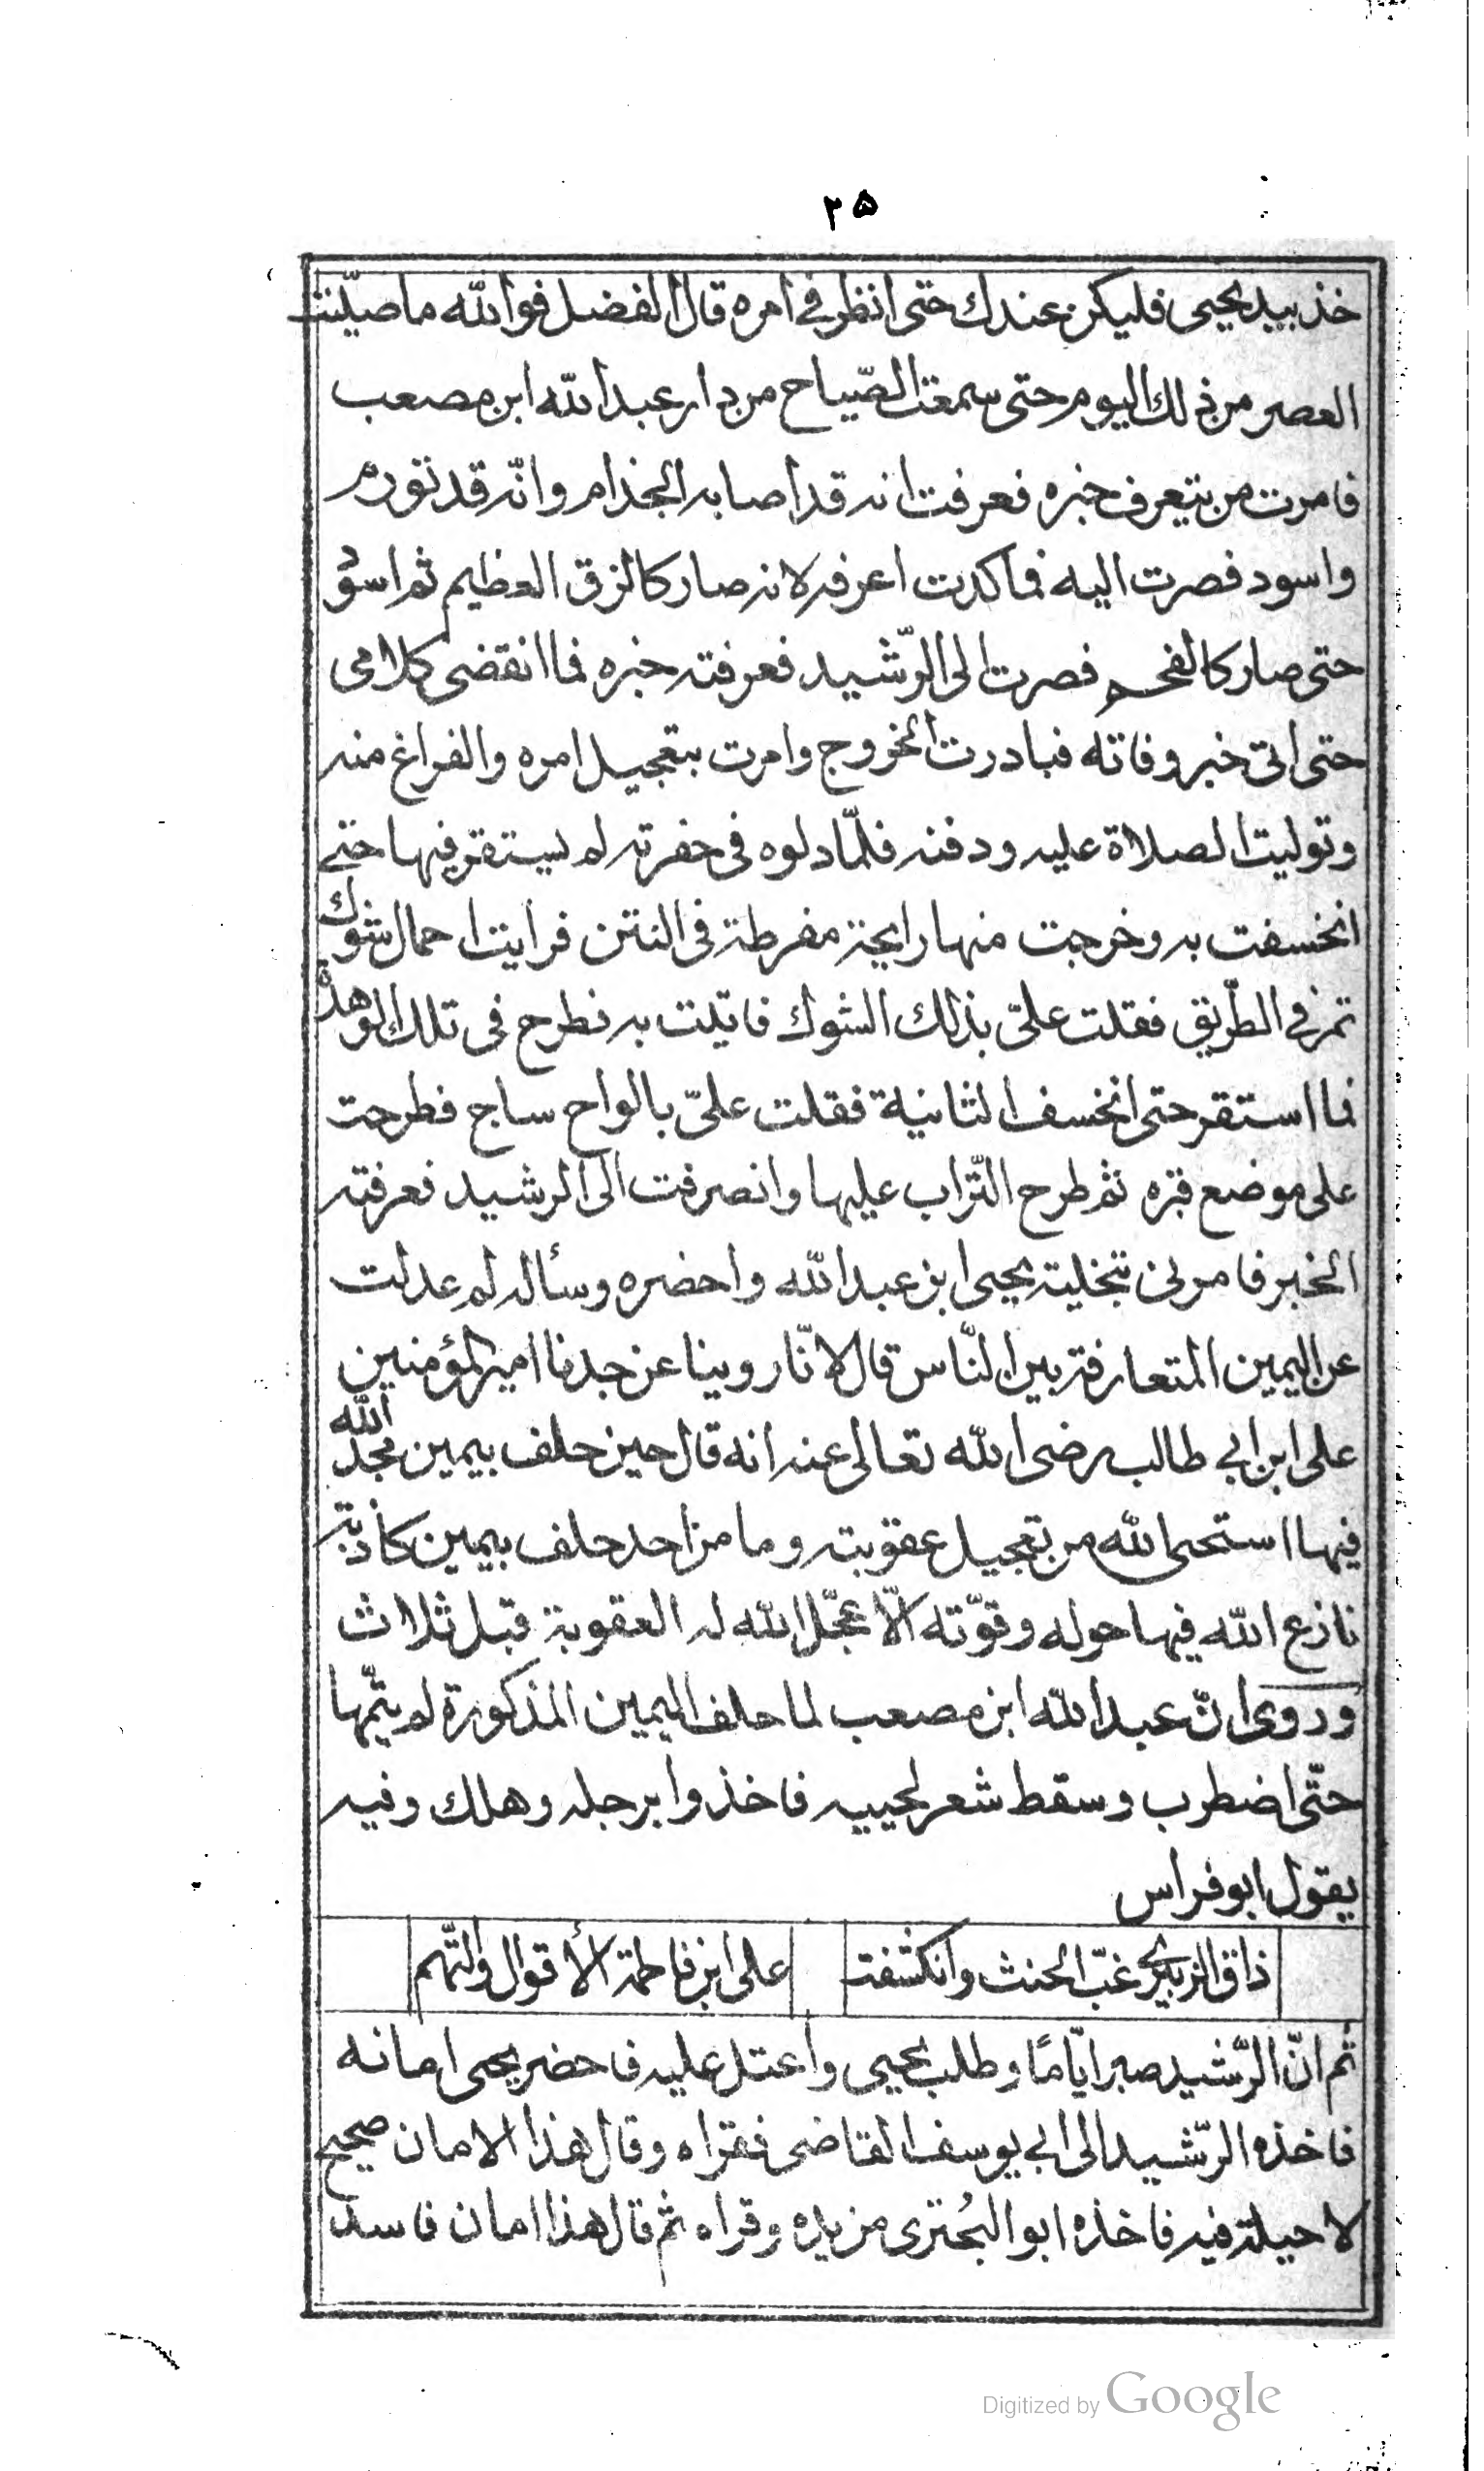 ٢٥
خذ بيد يحيى فليكن عندك حتى انظر في امره قال الفضل فوالله ما صيّلت
العصر من ذلك اليوم حتى سمعت الصّياح من دار عبد الله ابن مصعب
فامرت من يتعرف خبره فعرفت انه قد اصابه الجذام وانّه قد تورم
واسود فصرت اليه فما كدت اعرفه لانه صار كالزق العظيم ثم اسودّ
حتى صار كالفحم فصرت الى الرّشيد فعرفته خبره فما انقضى كلامى
حتى اتى خبر وفاته فبادرت الخروج وامرت بتعجيل امره والفراغ منه
وتوليت الصلاة عليه ودفنه فلمّا دلوه فى حفرته لم يستقر فيها حتى
انخسفت به وخرجت منها رايحة مفرطة فى النتن فرايت احمال شوك
تمر في الطّريق فقلت علىّ بذلك الشوك فاتيت به فطرح فى تلك الوهدة
فما استقر حتى انخسف الثانية فقلت علىّ بالواح ساج فطرحت
على موضع قبره ثم طرح التّراب عليها وانصرفت الى الرشيد فعرفته
الخبر فامرنى بتخلية يحيى ابن عبد الله واحضره وسأله لم عدلت
عن اليمين المتعارفة بين النّاس قال لانّا روينا عن جدنا امير المؤمنين
على ابن ابي طالب رضى الله تعالى عنه انه قال من حلف بيمين مجّد الله
فيها استحى الله من تعجيل عقوبته وما من احد حلف بيمين كاذبة
نازع الله فيها حوله وقوّته الّا عجّل الله له العقوبة قبل ثلاث
وروى انّ عبد الله ابن مصعب لما حلف اليمين المذكورة لم يتمّها
حتّى اضطرب وسقط شعر لحييه فاخذوا برجله وهلك وفيه
يقول ابو فراس
ذاق الزبيرىّ غبّ الحنث وانكشفت على ابن فاطمة الأقوال والتّهم
ثم انّ الرّشيد صبر ايّامًا وطلب يحيى واعتل عليه فاحضر يحيى امانه
فاخذه الرّشيد الى ابي يوسف القاضى فقراه وقال هذا الامان صحيح
لا حيلة فيه فاخذه ابو البُحترى من يده وقراه ثم قال هذا امان فاسد
Digitized by Google